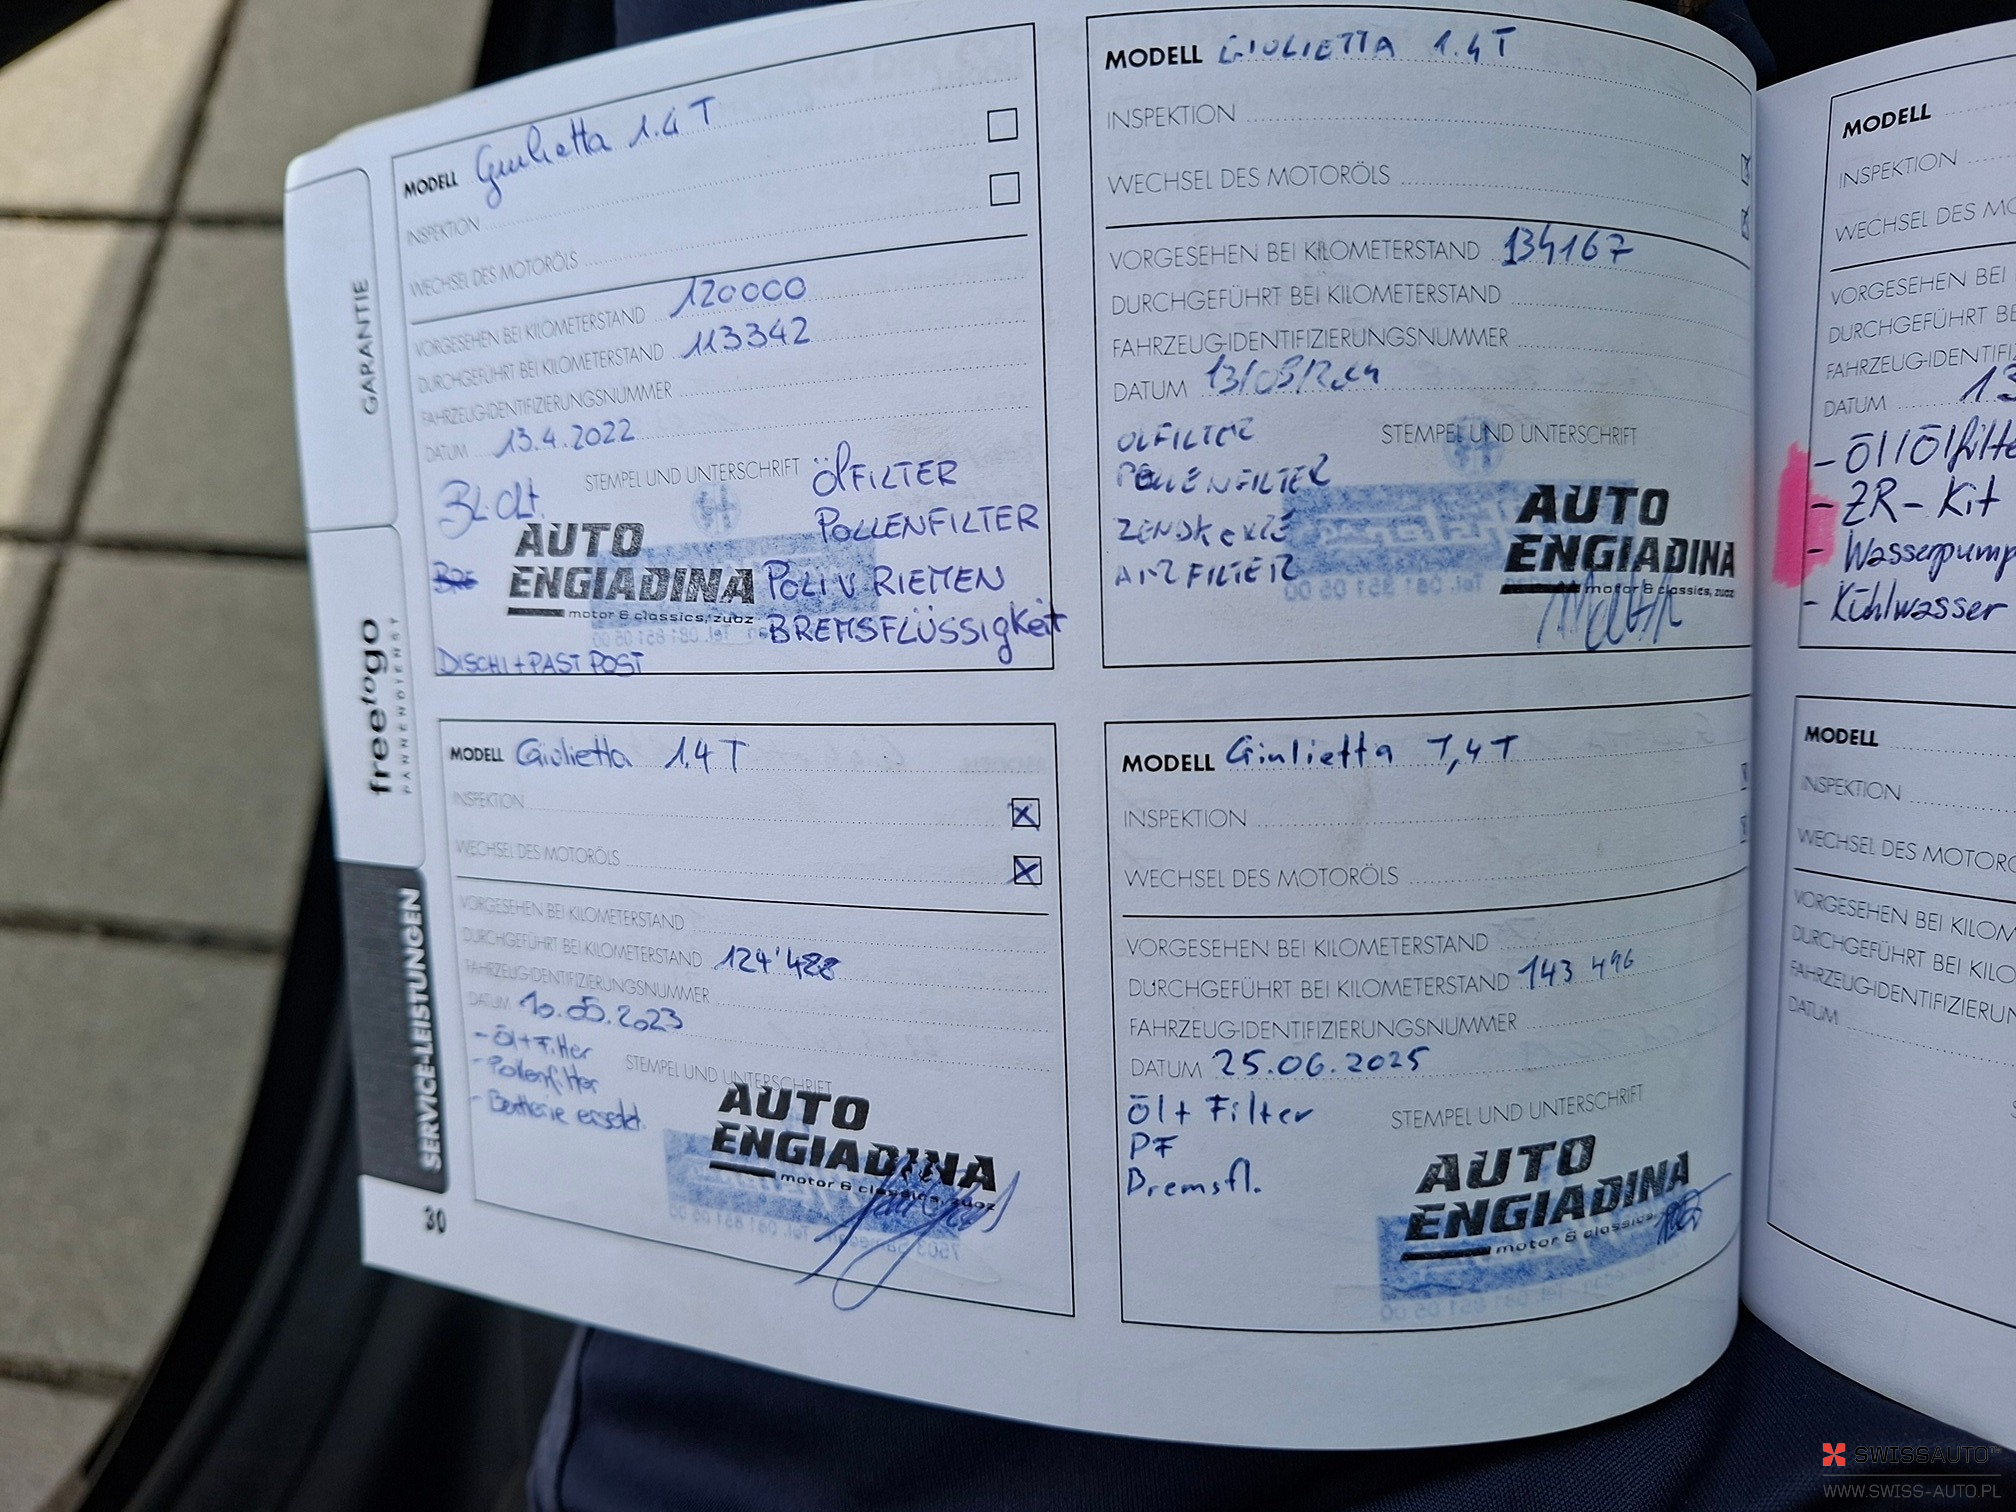 GARANTIE
freetogo
PANNENDIENST
SERVICE-LEISTUNGEN
30
MODELL Giulietta 1.4 T
INSPEKTION
WECHSEL DES MOTORÖLS
VORGESEHEN BEI KILOMETERSTAND 120000
DURCHGEFÜHRT BEI KILOMETERSTAND 113342
FAHRZEUG-IDENTIFIZIERUNGSNUMMER
DATUM 13.4.2022
STEMPEL UND UNTERSCHRIFT
ÖLFILTER
POLLENFILTER
POLI V RIEMEN
BREMSFLÜSSIGKEIT
AUTO
ENGIADINA
motor & classics, zuoz
DISCHI + PAST POST
MODELL GIULIETTA 1.4 T
INSPEKTION
WECHSEL DES MOTORÖLS
VORGESEHEN BEI KILOMETERSTAND 134167
DURCHGEFÜHRT BEI KILOMETERSTAND
FAHRZEUG-IDENTIFIZIERUNGSNUMMER
DATUM
STEMPEL UND UNTERSCHRIFT
ÖLFILTER
POLLENFILTER
AUTO
ENGIADINA
motor & classics, zuoz
MODELL Giulietta 1.4 T
INSPEKTION
WECHSEL DES MOTORÖLS
VORGESEHEN BEI KILOMETERSTAND
DURCHGEFÜHRT BEI KILOMETERSTAND 124'488
FAHRZEUG-IDENTIFIZIERUNGSNUMMER
DATUM 10.05.2023
- Öl + Filter
- Pollenfilter
- Batterie ersetzt.
STEMPEL UND UNTERSCHRIFT
AUTO
ENGIADINA
motor & classics, zuoz
MODELL Giulietta 1,4 T
INSPEKTION
WECHSEL DES MOTORÖLS
VORGESEHEN BEI KILOMETERSTAND
DURCHGEFÜHRT BEI KILOMETERSTAND 143 496
FAHRZEUG-IDENTIFIZIERUNGSNUMMER
DATUM 25.06.2025
Öl + Filter
PF
Bremsfl.
STEMPEL UND UNTERSCHRIFT
AUTO
ENGIADINA
motor & classics,
MODELL
INSPEKTION
WECHSEL DES
VORGESEHEN BEI
DURCHGEFÜHRT BEI
DATUM 13
- Öl/Ölfilte
- ZR-Kit
- Wasserpump
- Kühlwasser
MODELL
INSPEKTION
WECHSEL DES MOTORÖ
VORGESEHEN BEI KILOM
DURCHGEFÜHRT BEI KILO
FAHRZEUG-IDENTIFIZIERUN
DATUM
SWISSAUTO
WWW.SWISS-AUTO.PL